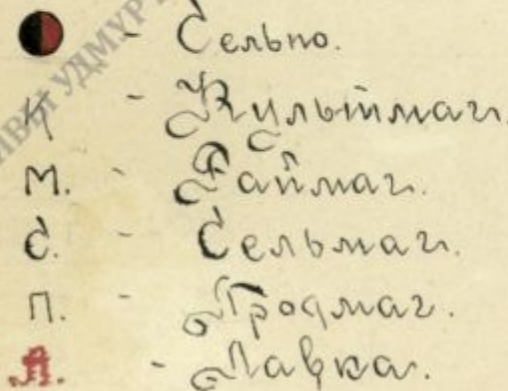 - Сельпо.
К - Культмаг.
М. - Раймаг.
С. - Сельмаг.
П. - Продмаг.
Л. - Лавка.